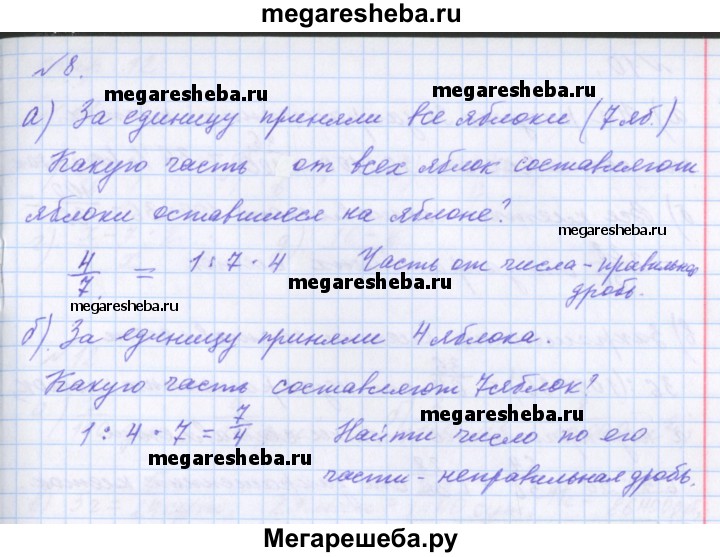 megaresheba.ru
№8.
megaresheba.ru megaresheba.ru
а) За единицу приняли все яблоки (7 яб.)
Какую часть от всех яблок составляют
яблоки оставшиеся на яблоне?
megaresheba.ru
4/7 = 1 : 7 · 4 Часть от числа - правильная
дробь.
megaresheba.ru
б) За единицу приняли 4 яблока.
Какую часть составляют 7 яблок?
megaresheba.ru
1 : 4 · 7 = 7/4 Найти число по его
megaresheba.ru
части - неправильная дробь.
Мегарешеба.ру